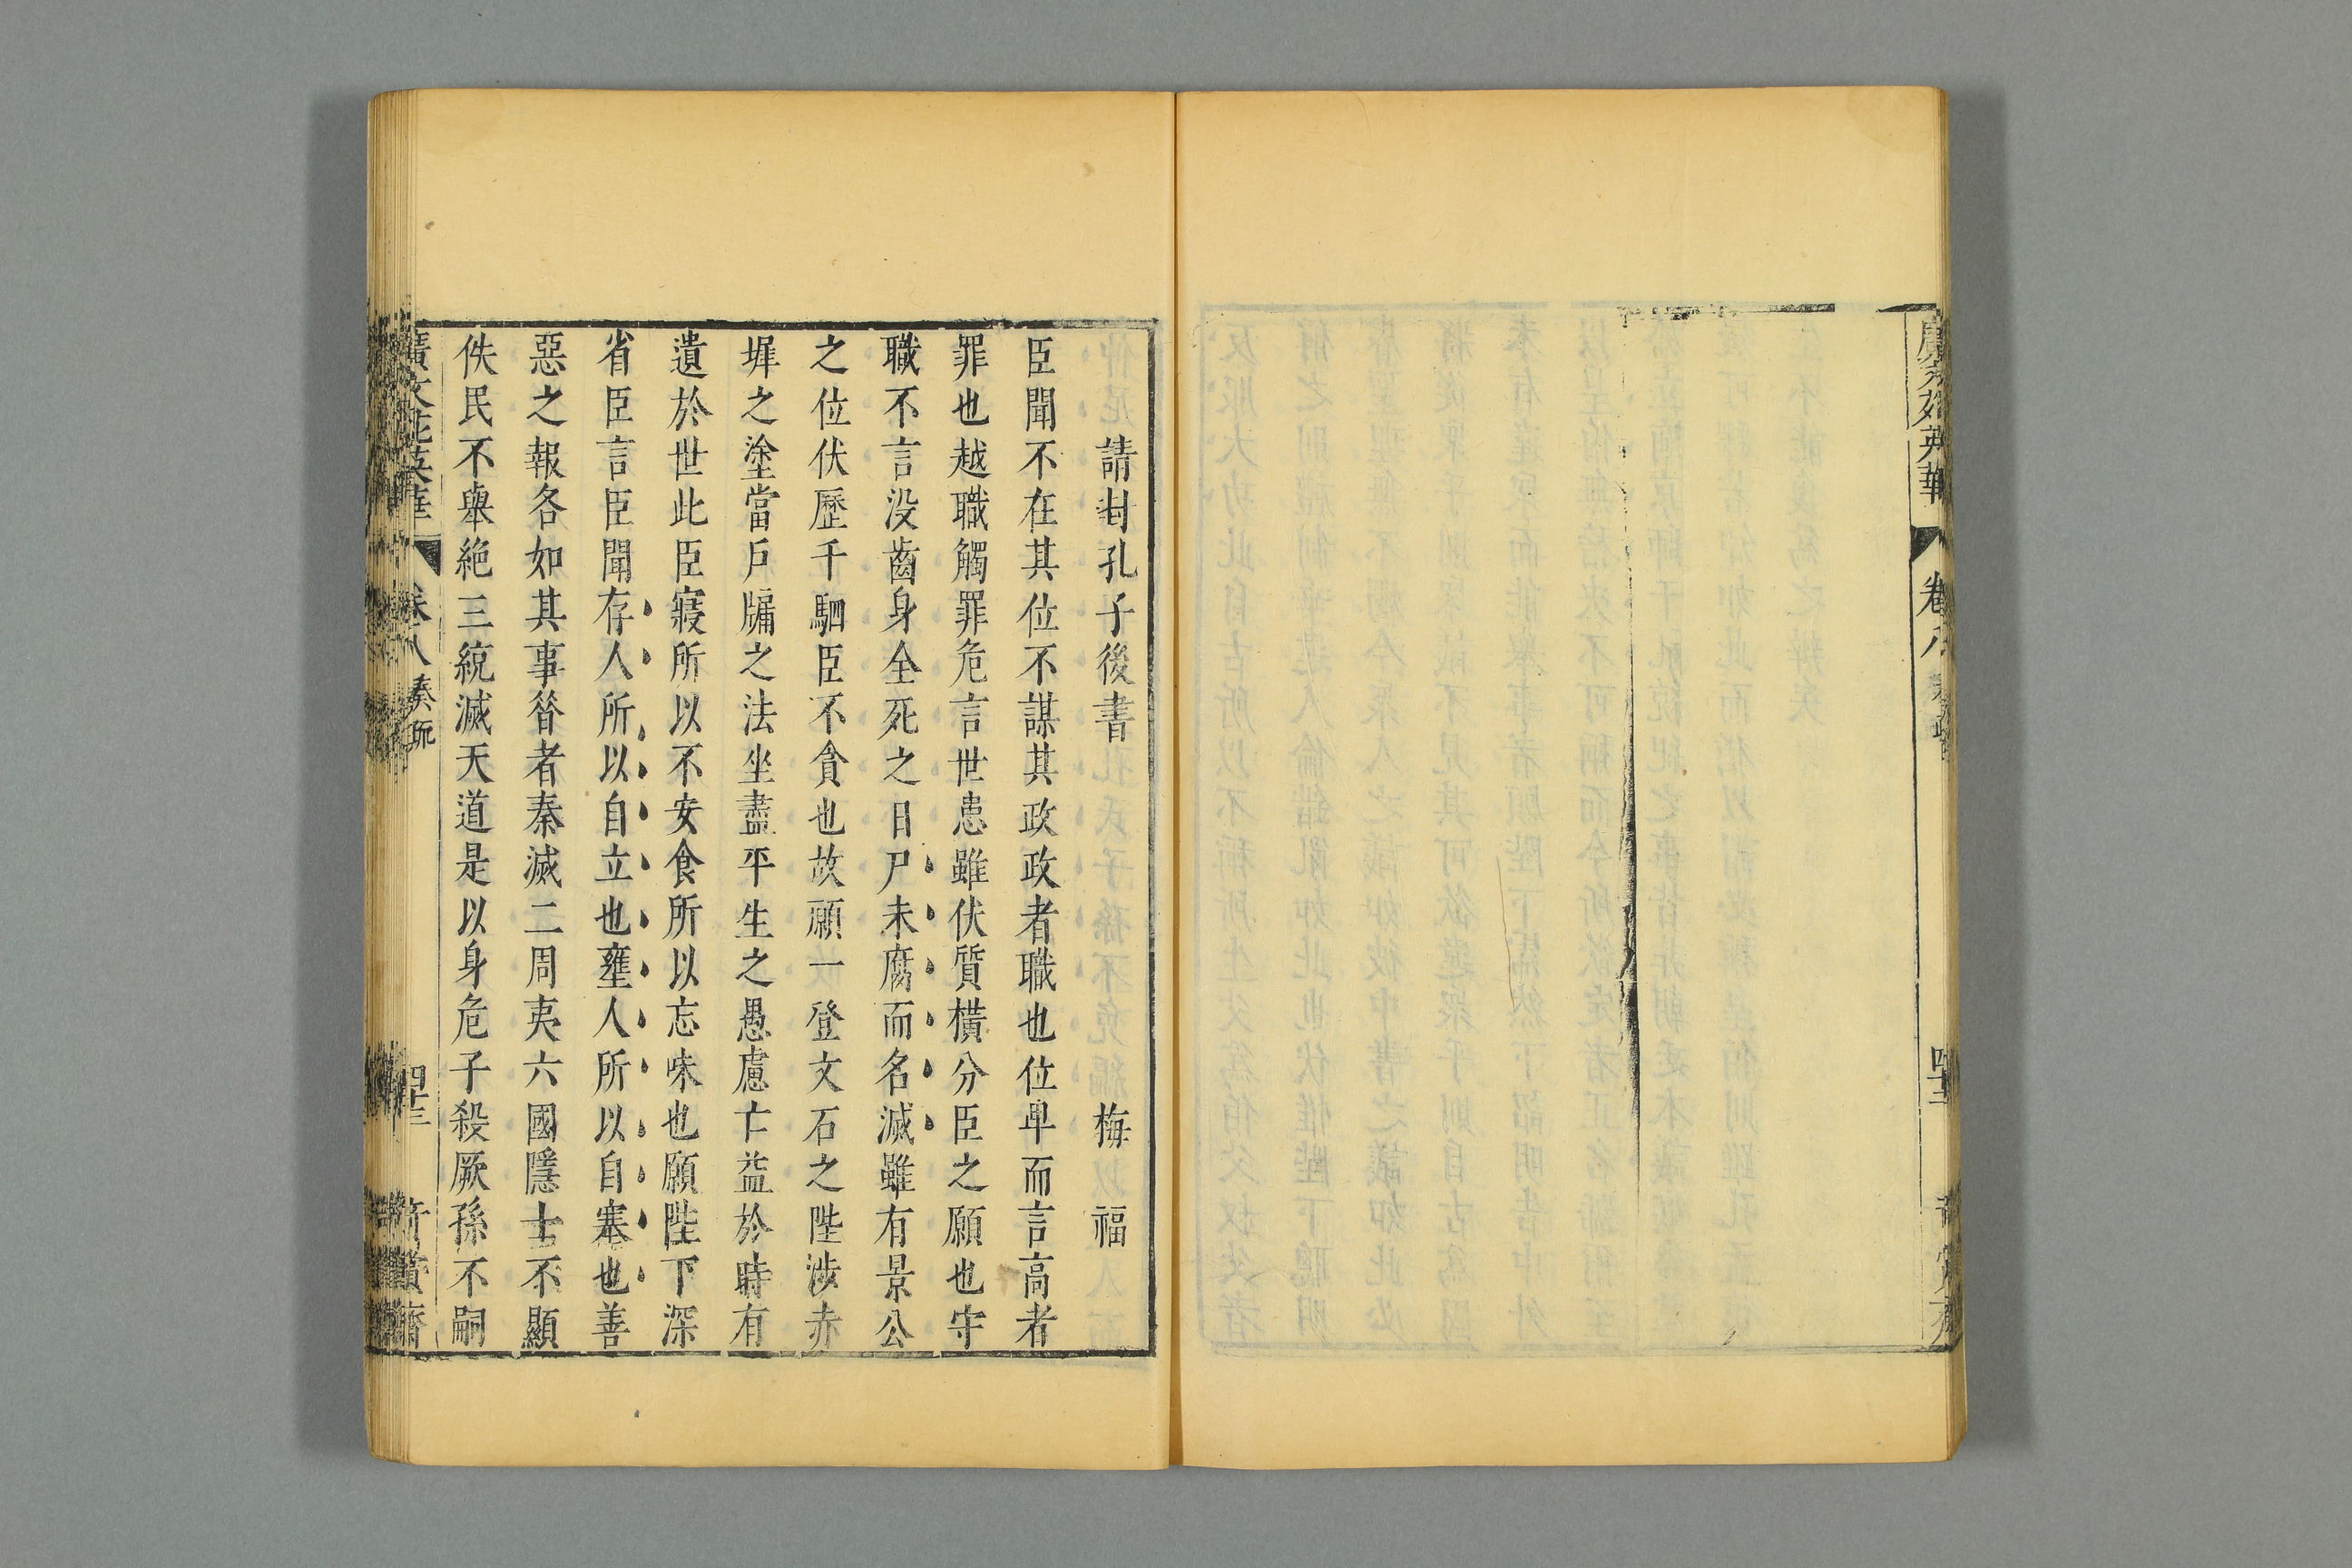 廣文苑英華 卷八 奏疏 四十二
請封孔子後書 梅福
臣聞不在其位不謀其政政者職也位卑而言高者
罪也越職觸罪危言世患雖伏質橫分臣之願也守
職不言没齒身全死之日尸未腐而名滅雖有景公
之位伏歷千駟臣不貪也故願一登文石之陛涉赤
墀之塗當戶牖之法坐盡平生之愚慮亡益於時有
遺於世此臣寢所以不安食所以忘味也願陛下深
省臣言臣聞存人所以自立也壅人所以自塞也善
惡之報各如其事昝者秦滅二周夷六國隱士不顯
佚民不舉絶三統滅天道是以身危子殺厥孫不嗣
廣文苑英華 卷八 奏疏 四十三